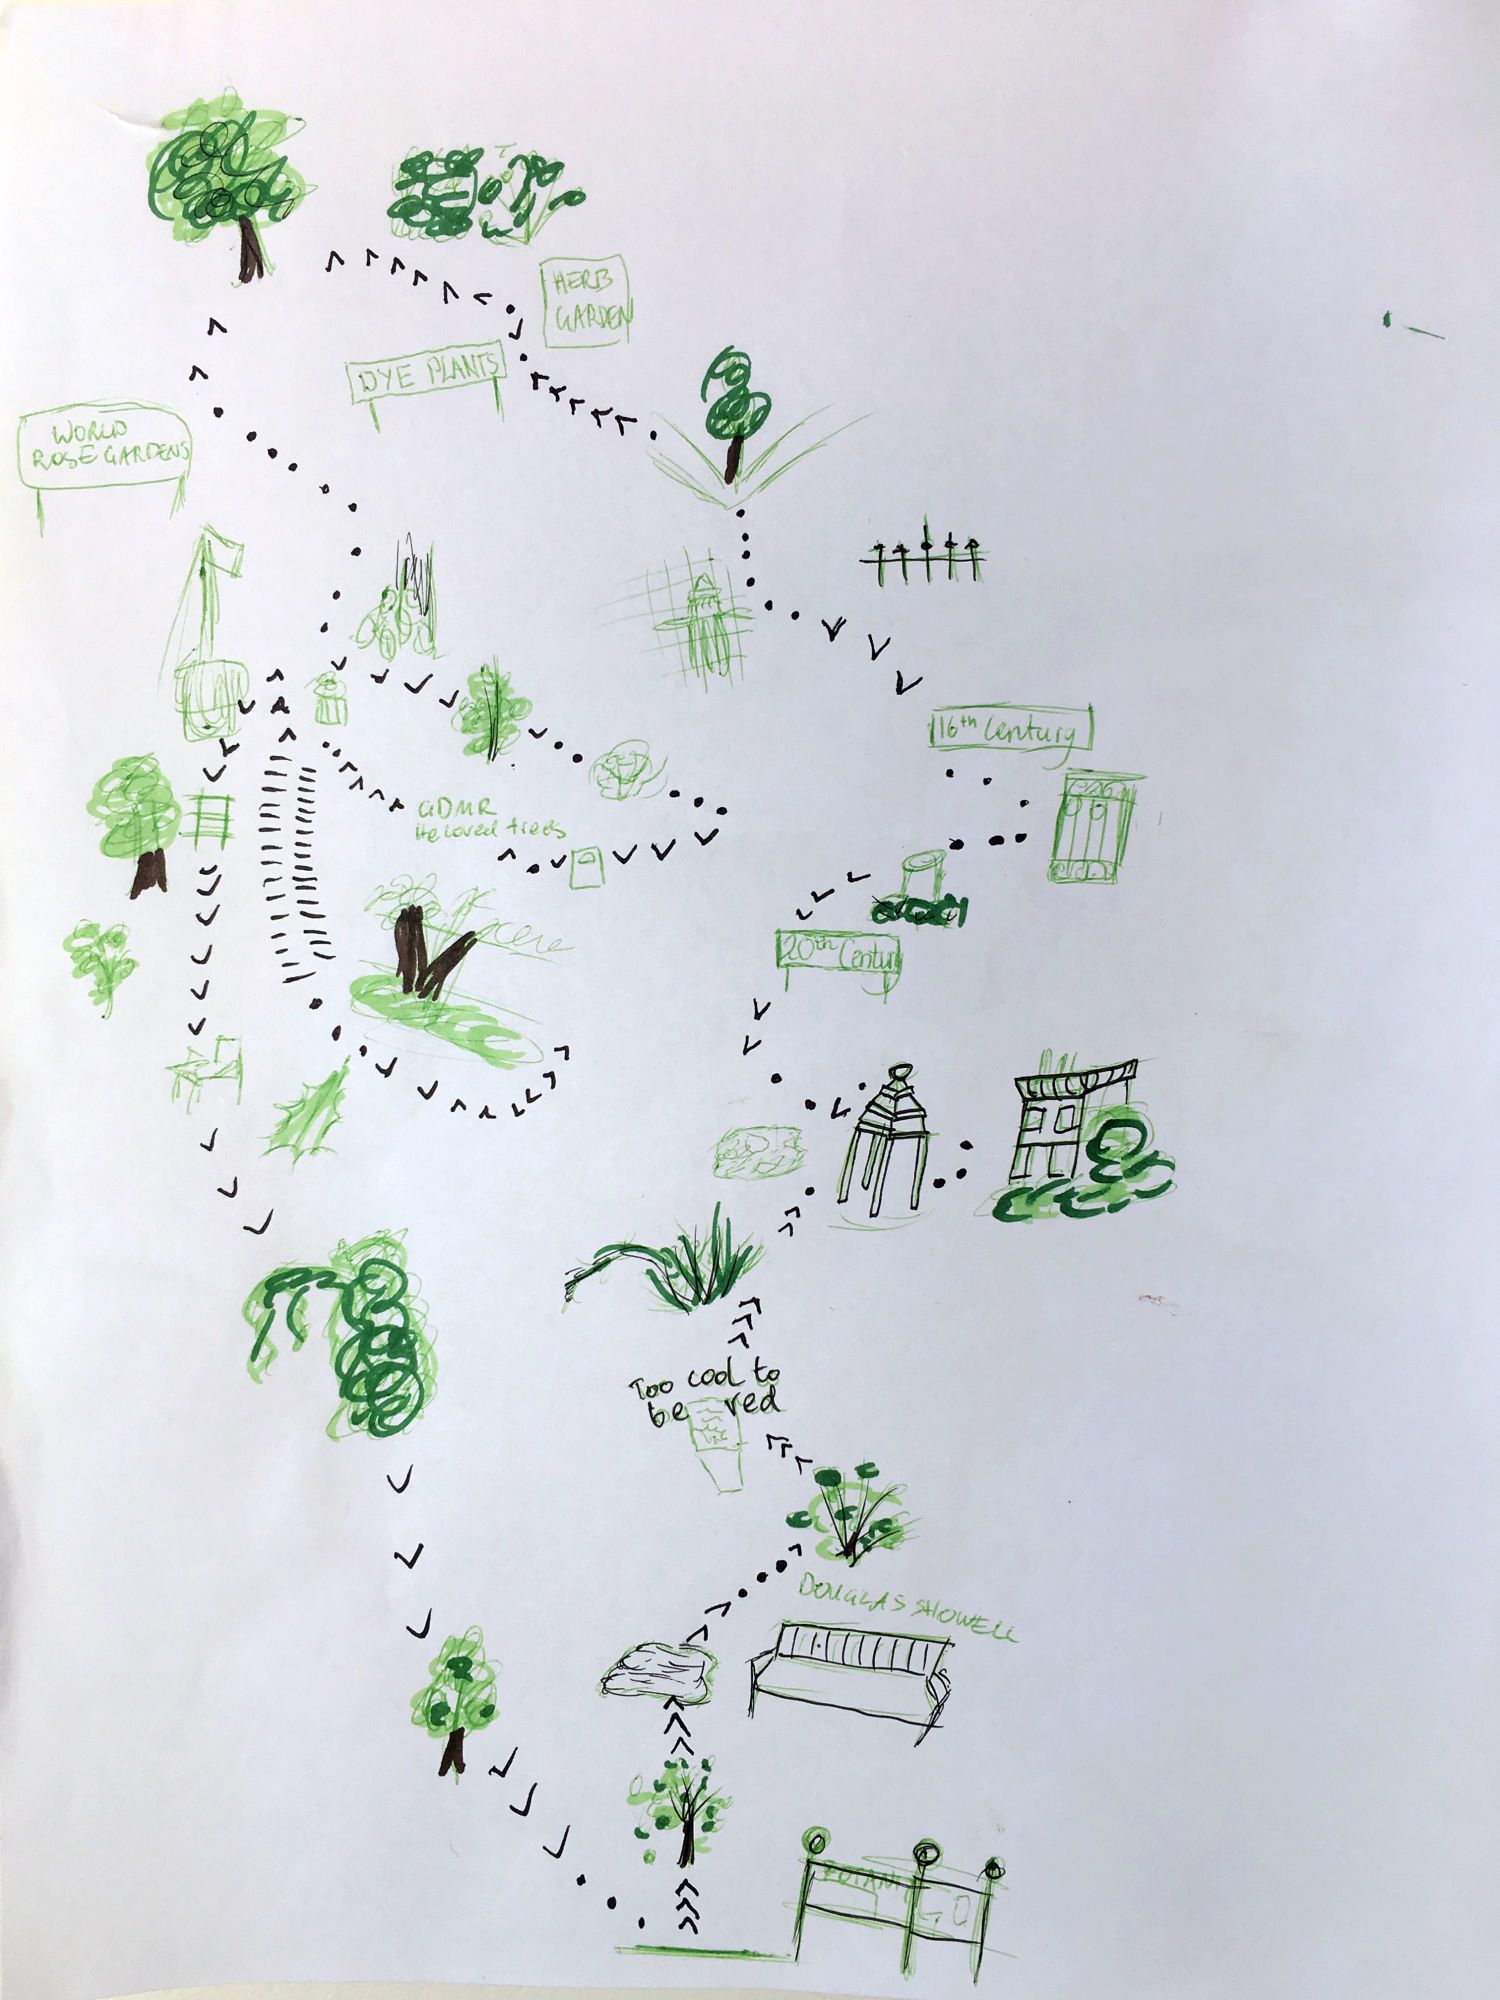 HERB
GARDEN
DYE PLANTS
WORLD
ROSE GARDENS
16th Century
GDMR
He loved trees
20th Century
Too cool to
be red
DOUGLAS SHOWELL